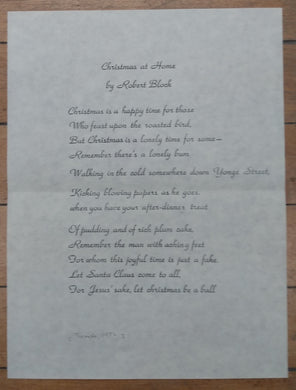 Christmas at Home
by Robert Block
Christmas is a happy time for those
Who feast upon the roasted bird,
But Christmas is a lonely time for some—
Remember there's a lonely bum
Walking in the cold somewhere down Yonge Street,
Kicking blowing papers as he goes,
when you have your after-dinner treat
Of pudding and of rich plum cake,
Remember the man with aching feet
For whom this joyful time is just a fake.
Let Santa Claus come to all,
For Jesus' sake, let christmas be a ball